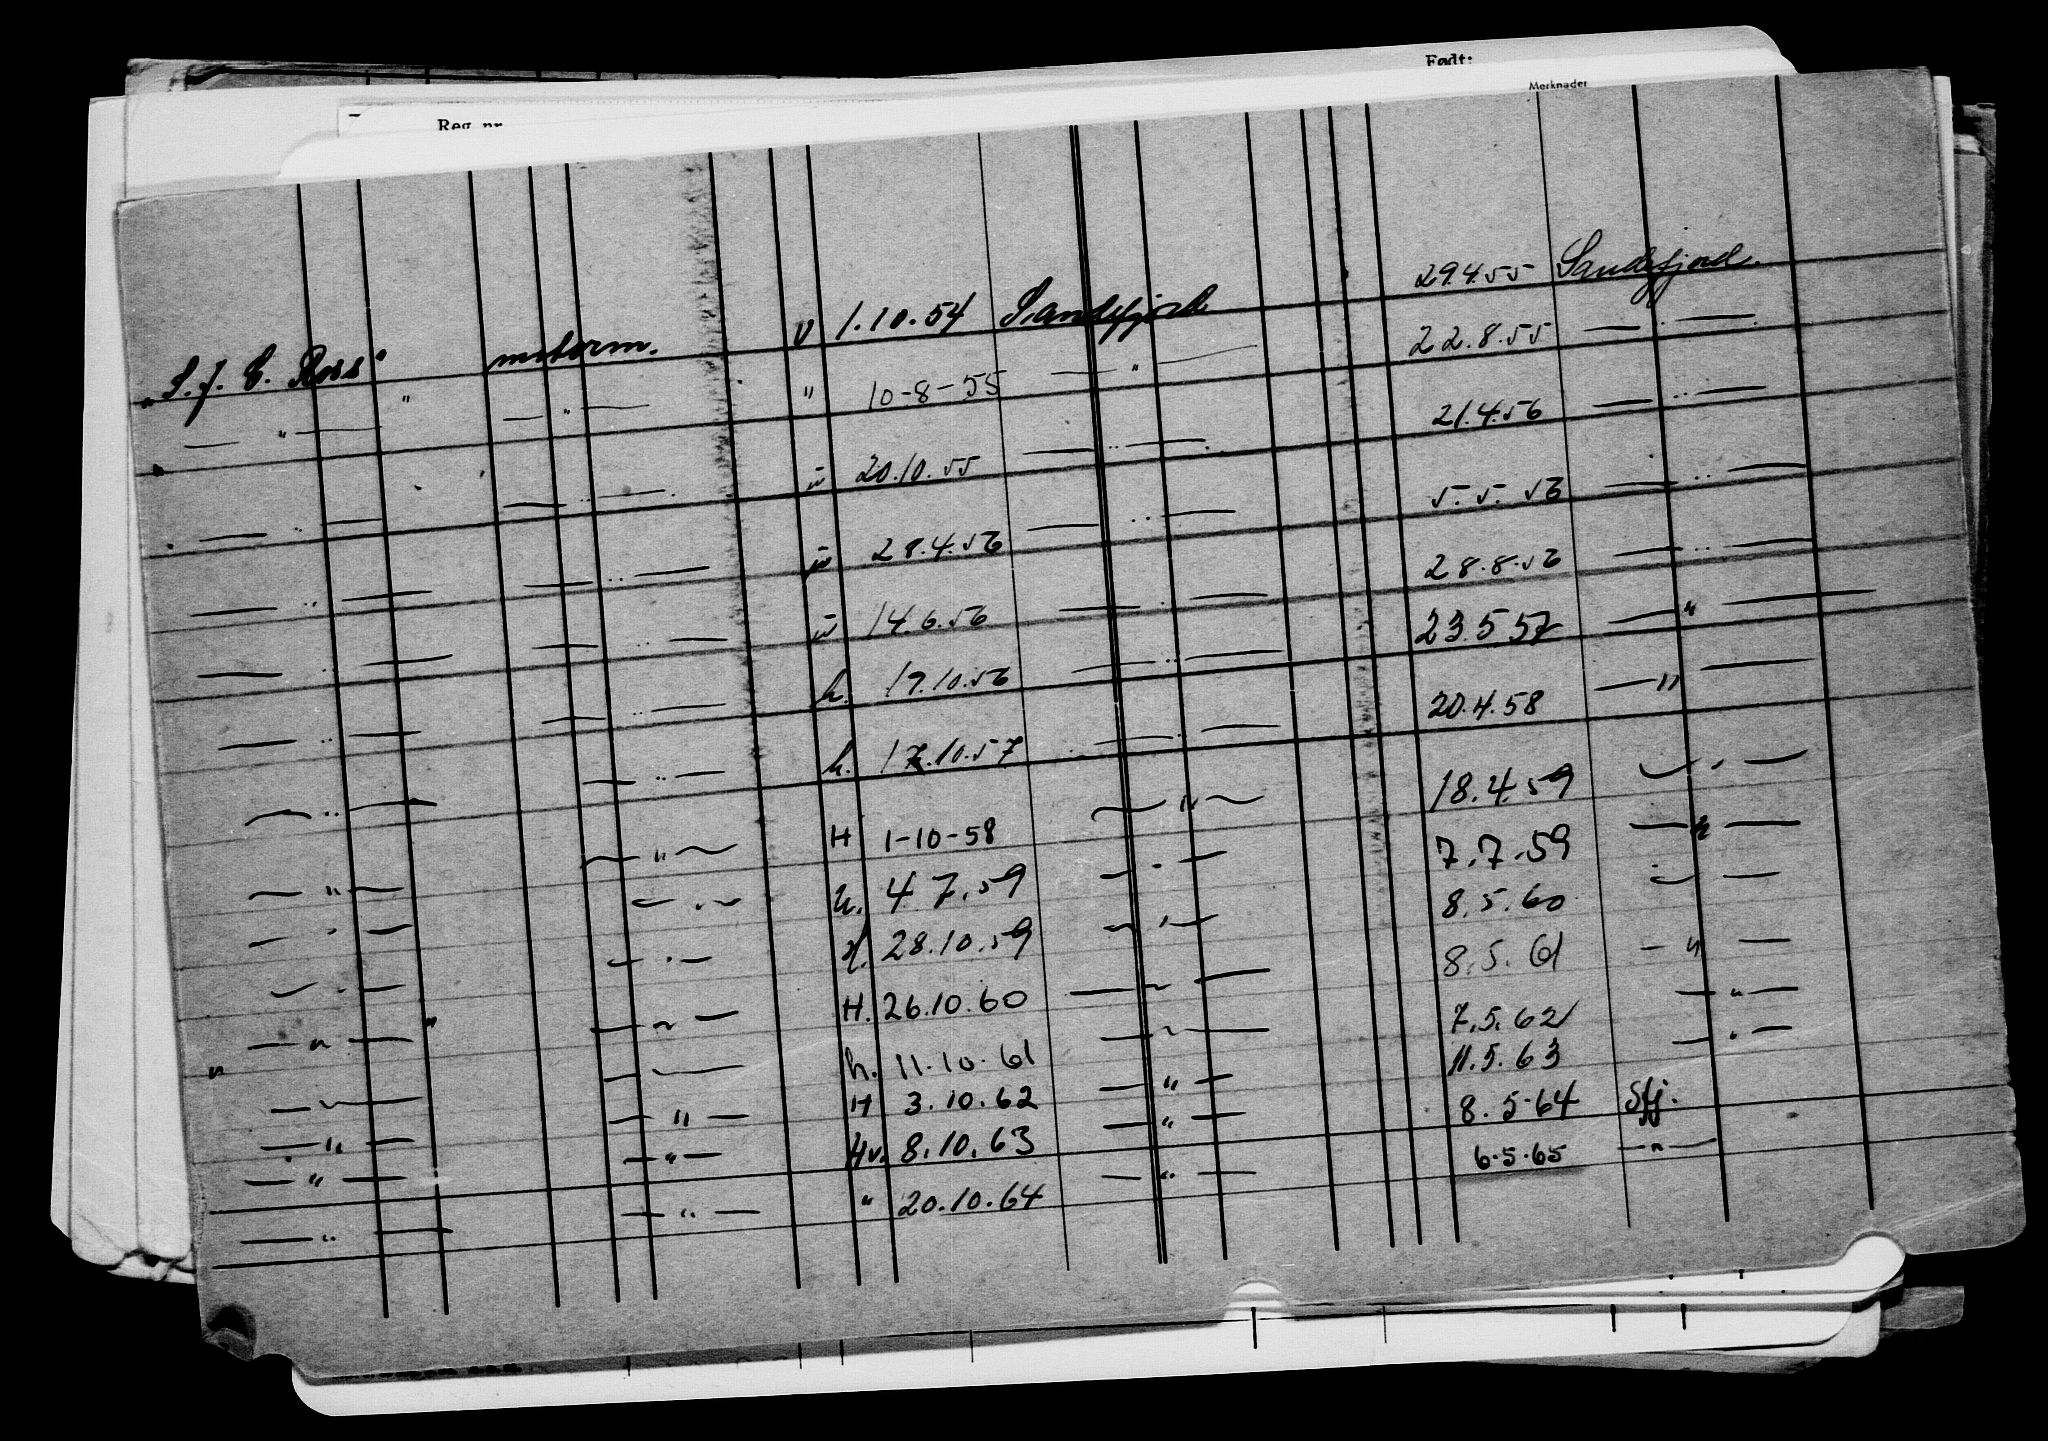 Født:
Merknader
Reg. nr.
„S. J. C. Ross" motorm. V 1.10.54 Sandefjord 29.4.55 Sandefjord.
— " — " — " — " 10-8-55 — " — 22.8.55 — " —
— " — — " — " 20.10.55 — " — 21.4.56 — " —
— " — — " — " 28.4.56 — " — 5.5.56 — " —
— " — — " — " 14.6.56 — " — 28.8.56 — " —
— " — — " — h. 17.10.56 — " — 23.5 57 — " —
— " — — " — h. 17.10.57 — " — 20.4.58 — " —
— " — — " — H 1-10-58 — " — 18.4.59 — " —
— " — — " — h. 4 7.59 — " — 7.7.59 — " —
— " — — " — H. 28.10.59 — " — 8.5.60 — " —
— " — — " — H. 26.10.60 — " — 8.5.61 — " —
— " — " — " — h. 11.10.61 — " — 7.5.62 — " —
— " — — " — H 3.10.62 — " — 11.5.63 — " —
— " — — " — Hv. 8.10.63 — " — 8.5-64 Sfj.
— " — — " — " 20.10.64 — " — 6.5.65 — " —